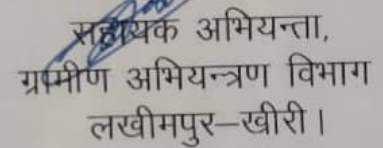 सहायक अभियन्ता,
ग्रामीण अभियन्त्रण विभाग
लखीमपुर–खीरी।